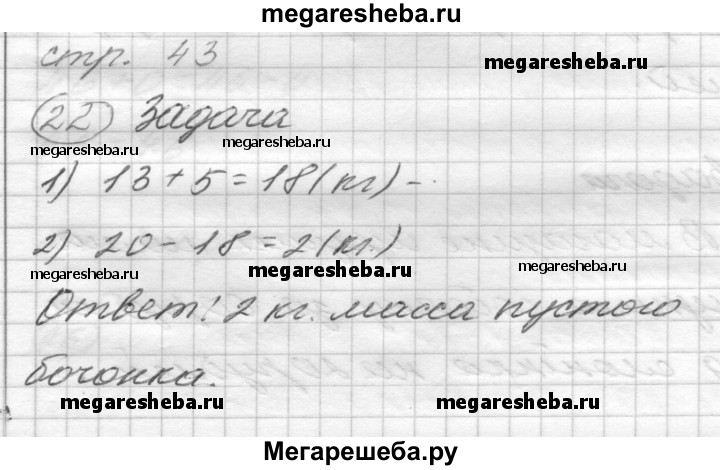 megaresheba.ru
стр. 43
megaresheba.ru
22 Задача
megaresheba.ru megaresheba.ru
1) 13 + 5 = 18 (кг) -.
2) 20 - 18 = 2 (кг.)
megaresheba.ru megaresheba.ru megaresheba.ru
Ответ! 2 кг. масса пустого
бочонка.
megaresheba.ru megaresheba.ru
Мегарешеба.ру